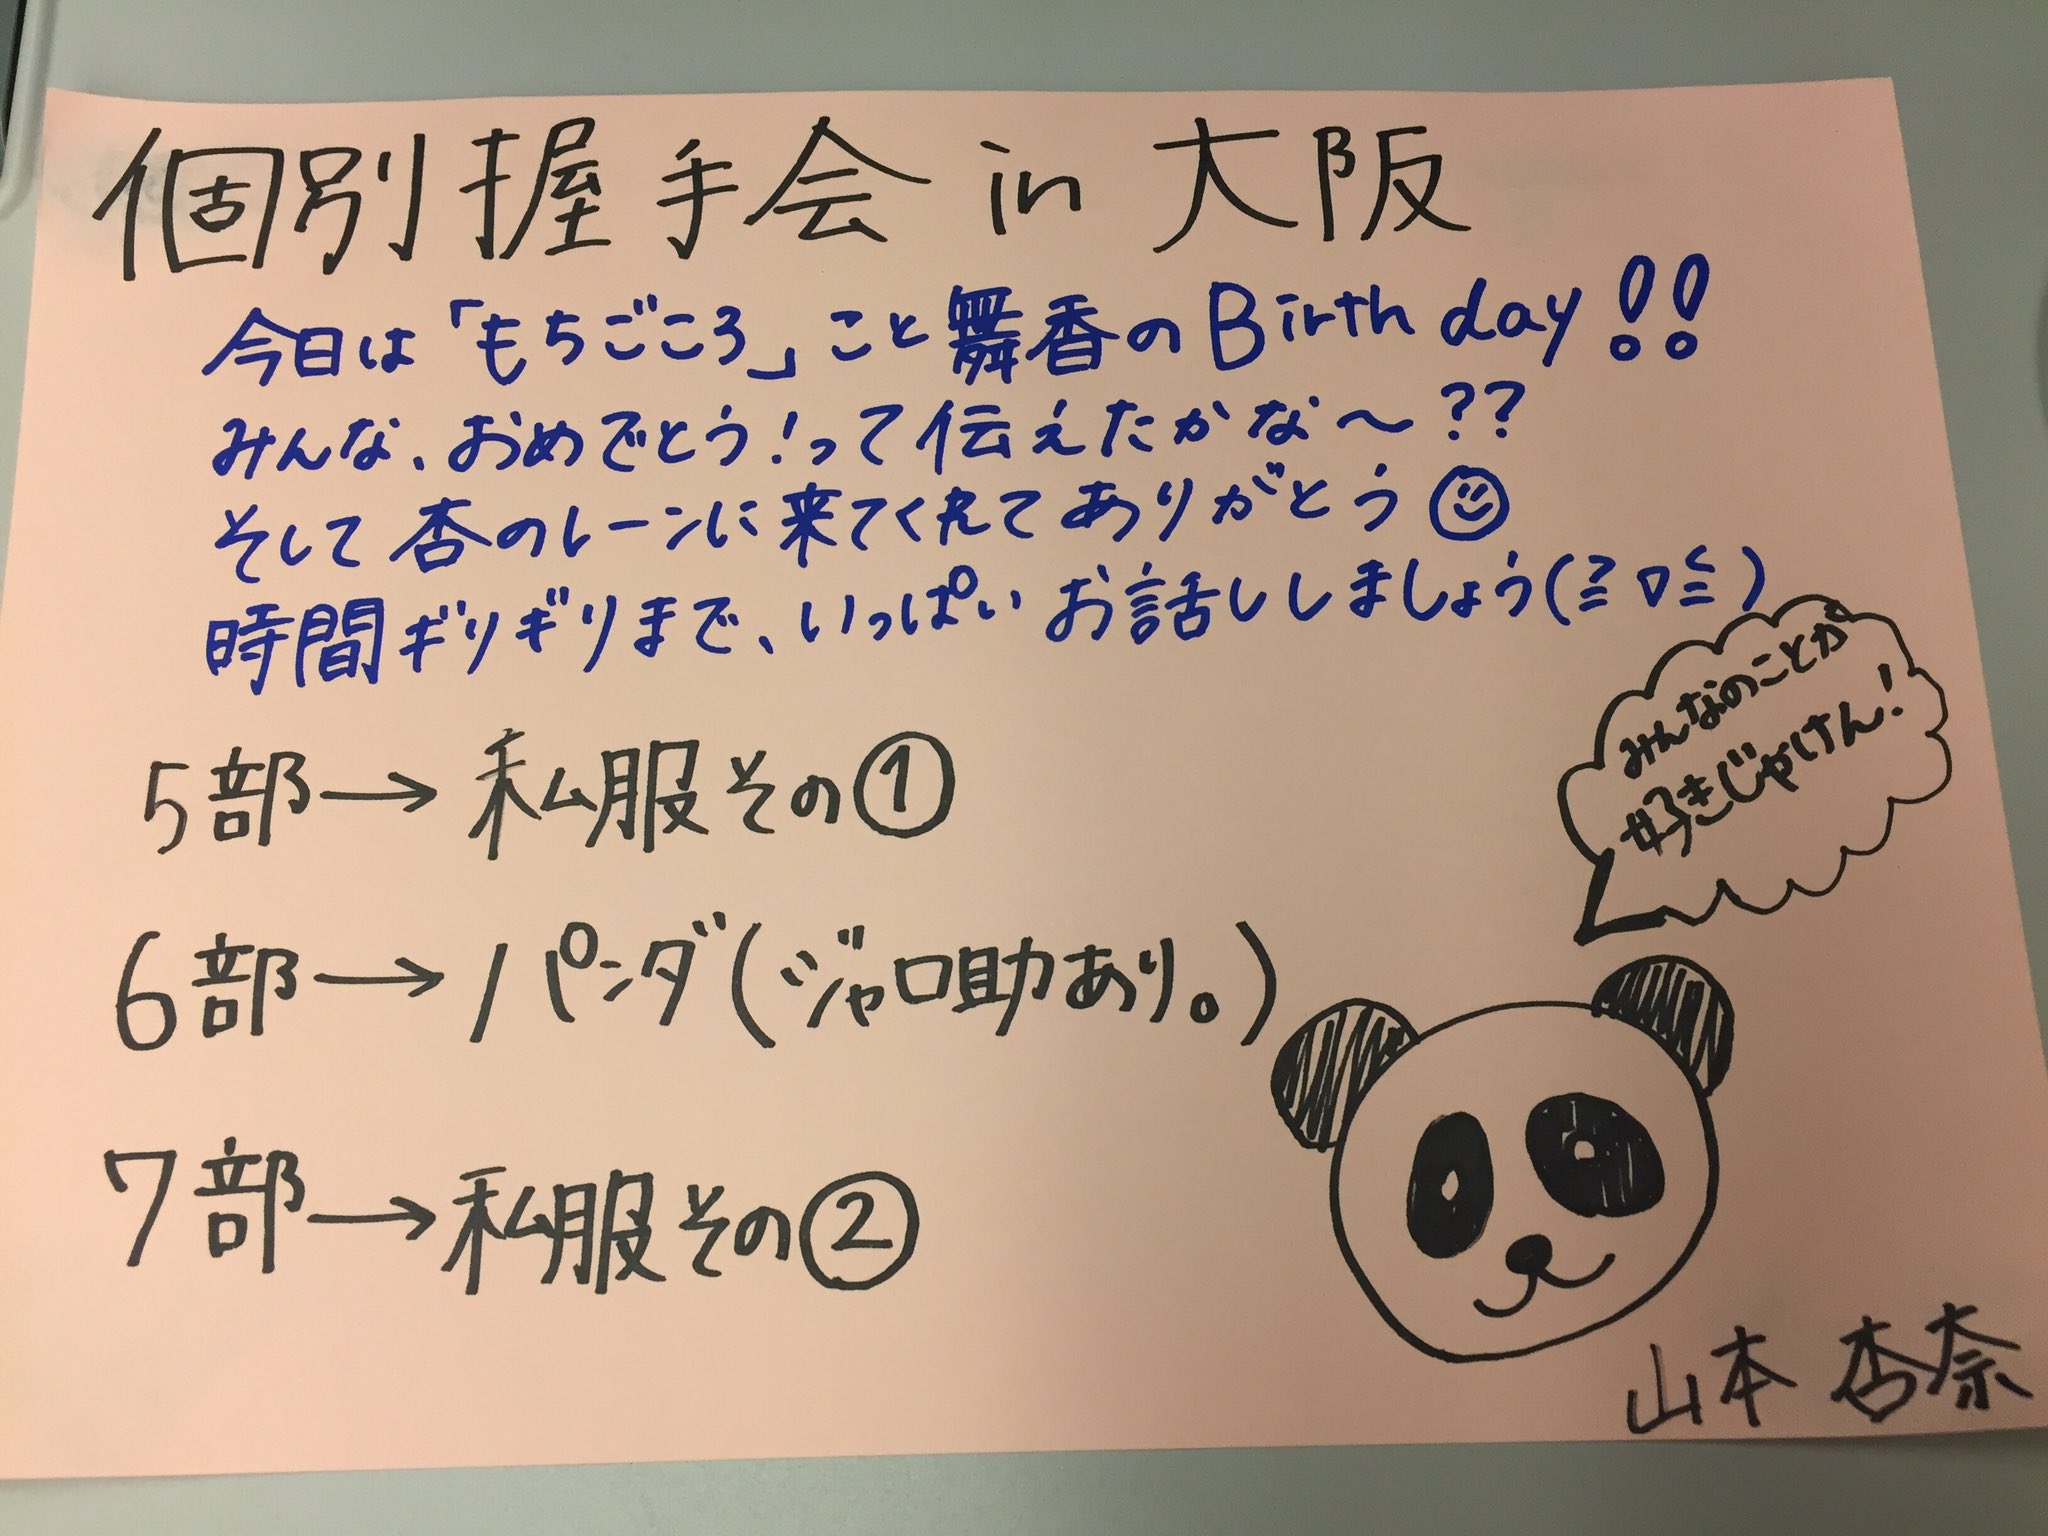 個別握手会 in 大阪
今日は「もちごころ」こと舞香のBirthday!!
みんな、おめでとう!って伝えたかな〜??
そして杏のレーンに来てくれてありがとう
時間ギリギリまで、いっぱいお話ししましょう(≧▽≦)
5部→私服その①
6部→パンダ(ジャロ助あり。)
7部→私服その②
みんなのことが
好きじゃけん!
山本 杏奈